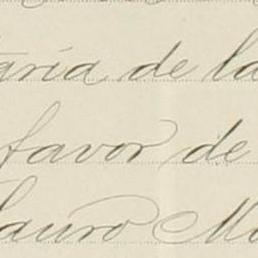 taría de la
favor de
Lauro M